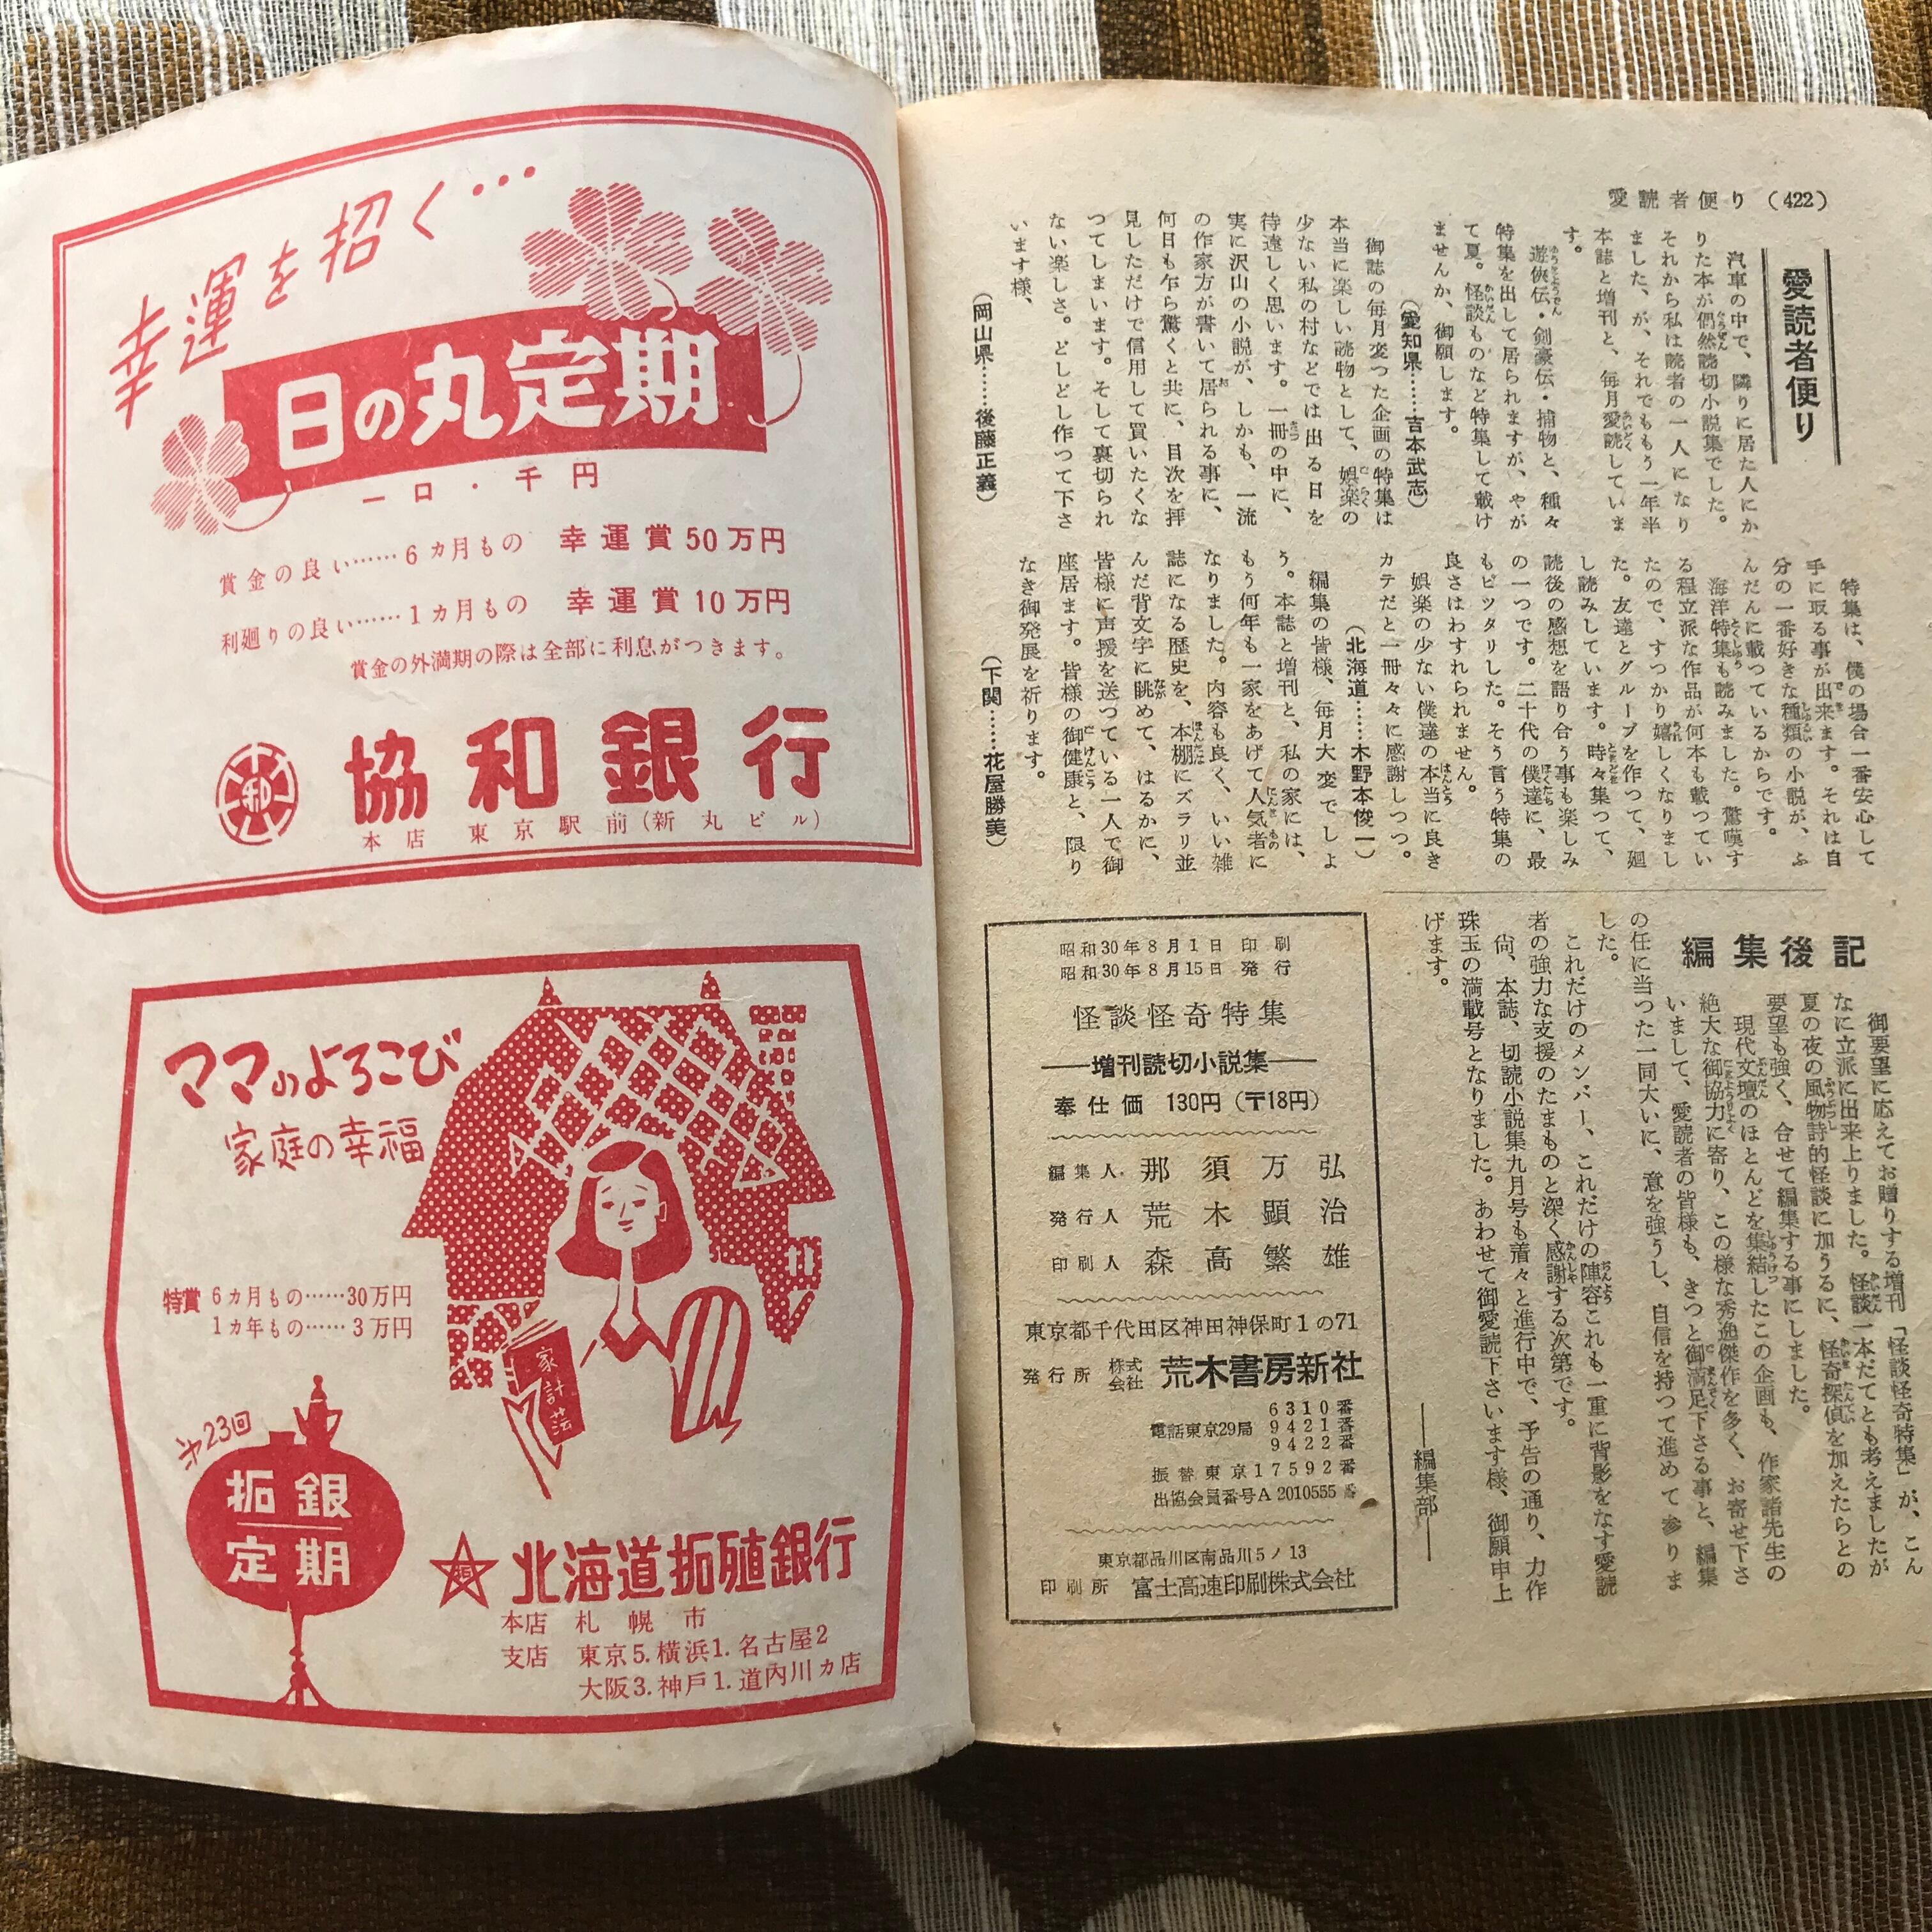 愛読者便り(422)
愛読者便り
汽車の中で、隣りに居た人にか
りた本が偶然読切小説集でした。
それから私は読者の一人になり
ました、が、それでももう一年半
本誌と増刊と、毎月愛読していま
す。
遊俠伝・剣豪伝・捕物と、種々
特集を出して居られますが、やが
て夏。怪談ものなど特集して載け
ませんか、御願します。
(愛知県……吉本武志)
御誌の毎月変つた企画の特集は
本当に楽しい読物として、娯楽の
少ない私の村などでは出る日を
待遠しく思います。一冊の中に、
実に沢山の小説が、しかも、一流
の作家方が書いて居られる事に、
何日も乍ら驚くと共に、目次を拝
見しただけで信用して買いたくな
つてしまいます。そして裏切られ
ない楽しさ。どしどし作つて下さ
います様、
(岡山県……後藤正義)
特集は、僕の場合一番安心して
手に取る事が出来ます。それは自
分の一番好きな種類の小説が、ふ
んだんに載つているからです。
海洋特集も読みました。驚嘆す
る程立派な作品が何本も載つてい
たので、すつかり嬉しくなりまし
た。友達とグループを作つて、廻
し読みしています。時々集つて、
読後の感想を語り合う事も楽しみ
の一つです。二十代の僕達に、最
もピツタリした。そう言う特集の
良さはわすれられません。
娯楽の少ない僕達の本当に良き
カテだと一冊々々に感謝しつつ。
(北海道……木野本俊一)
編集の皆様、毎月大変でしよ
う。本誌と増刊と、私の家には、
もう何年も一家をあげて人気者に
なりました。内容も良く、いい雑
誌になる歴史を、本棚にズラリ並
んだ背文字に眺めて、はるかに、
皆様に声援を送つている一人で御
座居ます。皆様の御健康と、限り
なき御発展を祈ります。
(下関……花屋勝美)
編集後記
御要望に応えてお贈りする増刊「怪談怪奇特集」が、こん
なに立派に出来上りました。怪談一本だてとも考えましたが
夏の夜の風物詩的怪談に加うるに、怪奇探偵を加えたらとの
要望も強く、合せて編集する事にしました。
現代文壇のほとんどを集結したこの企画も、作家諸先生の
絶大な御協力に寄り、この様な秀逸傑作を多く、お寄せ下さ
いまして、愛読者の皆様も、きつと御満足下さる事と、編集
の任に当つた一同大いに、意を強うし、自信を持つて進めて参りま
した。
これだけのメンバー、これだけの陣容これも一重に背影をなす愛読
者の強力な支援のたまものと深く感謝する次第です。
尚、本誌、切読小説集九月号も着々と進行中で、予告の通り、力作
珠玉の満載号となりました。あわせて御愛読下さいます様、御願申上
げます。
——編集部——
昭和30年8月1日 印刷
昭和30年8月15日 発行
怪談怪奇特集
——増刊読切小説集——
奉仕価 130円(〒18円)
編集人 那須万弘
発行人 荒木顕治
印刷人 森高繁雄
東京都千代田区神田神保町1の71
発行所 株式会社 荒木書房新社
電話東京29局 6310番
9421番
9422番
振替東京17592番
出協会員番号A2010555番
東京都品川区南品川5ノ13
印刷所 富士高速印刷株式会社
幸運を招く…
日の丸定期
一口・千円
賞金の良い……6カ月もの 幸運賞50万円
利廻りの良い……1カ月もの 幸運賞10万円
賞金の外満期の際は全部に利息がつきます。
和
協和銀行
本店 東京駅前(新丸ビル)
ママのよろこび
家庭の幸福
特賞 6カ月もの……30万円
1カ年もの……3万円
家計簿
第23回
拓銀
定期
北海道拓殖銀行
本店 札幌市
支店 東京5.横浜1.名古屋2
大阪3.神戸1.道内川カ店